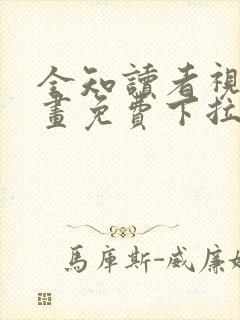 全知讀者視
畫免費下拉
馬庫斯-威廉